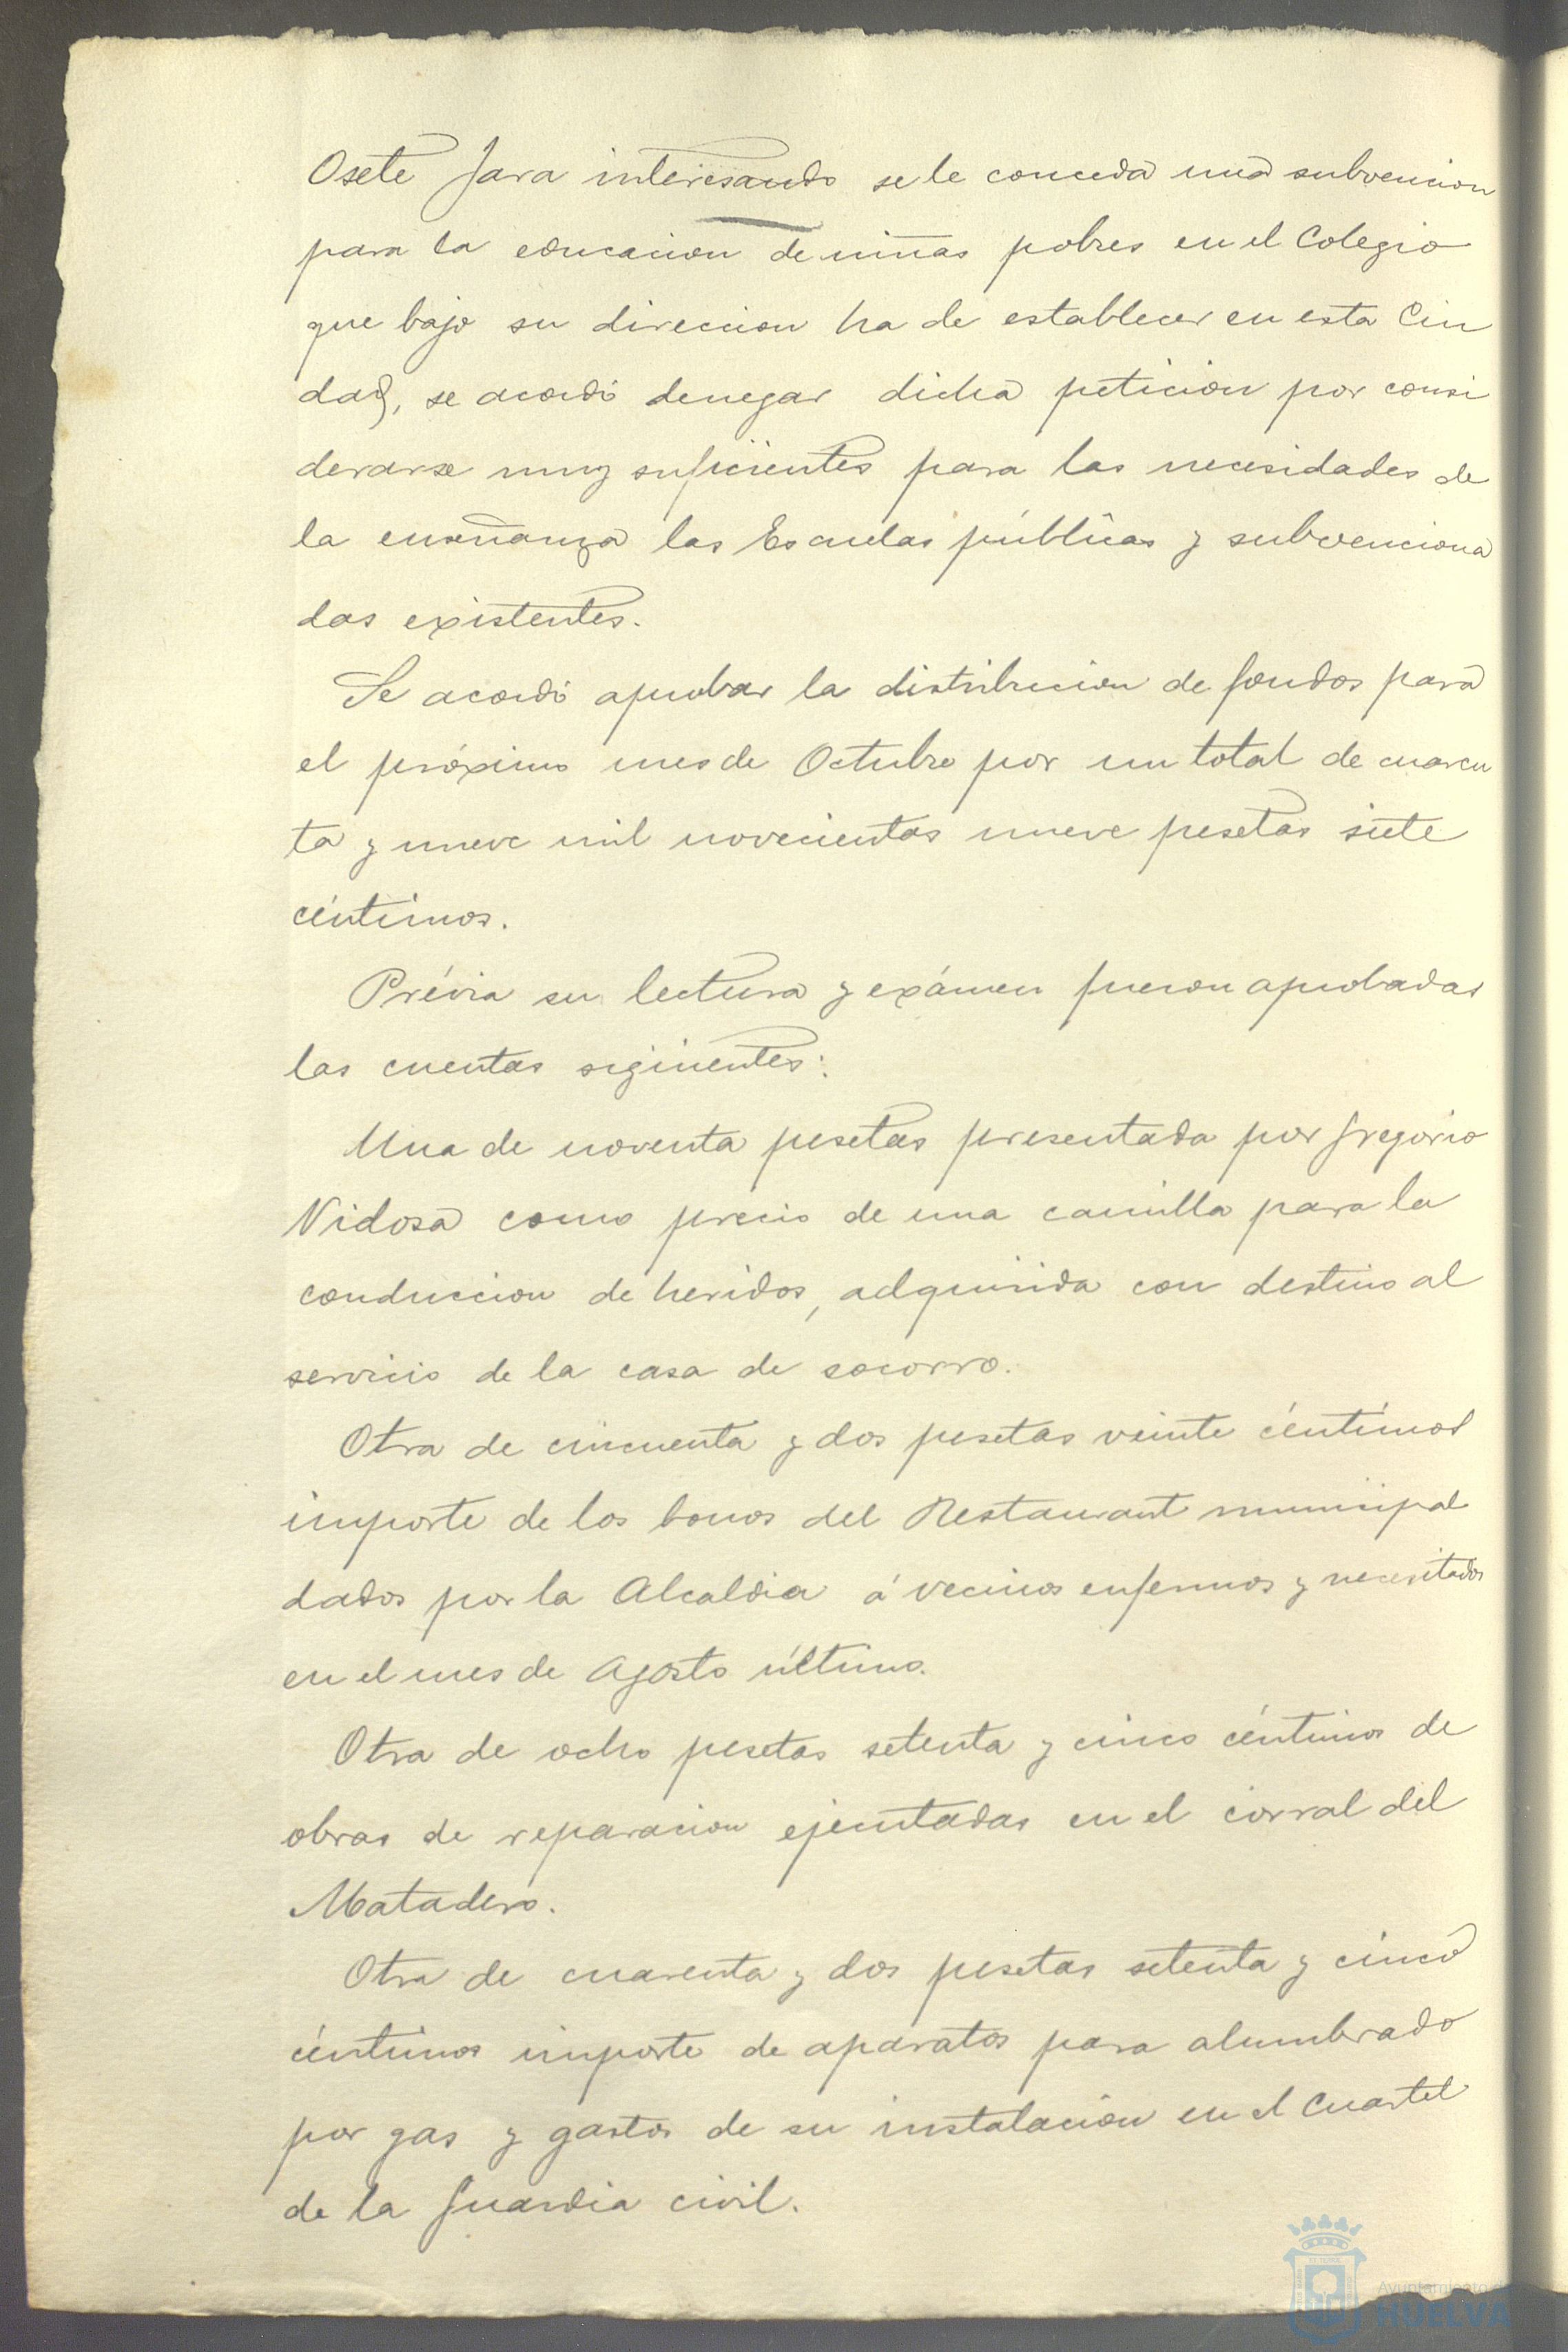 Osete Jara interesando se le conceda una subvencion
para la educacion de niñas pobres en el Colegio
que bajo su direccion ha de establecer en esta Ciu
dad, se acordó denegar dicha peticion por consi
derarse muy suficientes para las necesidades de
la enseñanza las Escuelas públicas y subvenciona
das existentes.
Se acordó aprobar la distribucion de fondos para
el próximo mes de Octubre por un total de cuaren
ta y nueve mil novecientas nueve pesetas siete
céntimos.
Prévia su lectura y exámen fueron aprobadas
las cuentas siguientes:
Una de noventa pesetas presentada por Gregorio
Vidosa como precio de una camilla para la
conduccion de heridos, adquirida con destino al
servicio de la casa de socorro.
Otra de cincuenta y dos pesetas veinte céntimos
importe de los bonos del Restaurant municipal
dados por la Alcaldia á vecinos enfermos y necesitados
en el mes de Agosto último.
Otra de ocho pesetas setenta y cinco céntimos de
obras de reparacion ejecutadas en el corral del
Matadero.
Otra de cuarenta y dos pesetas setenta y cinco
céntimos importe de aparatos para alumbrado
por gas y gastos de su instalacion en el Cuartel
de la Guardia civil.
Ayuntamiento de
HUELVA